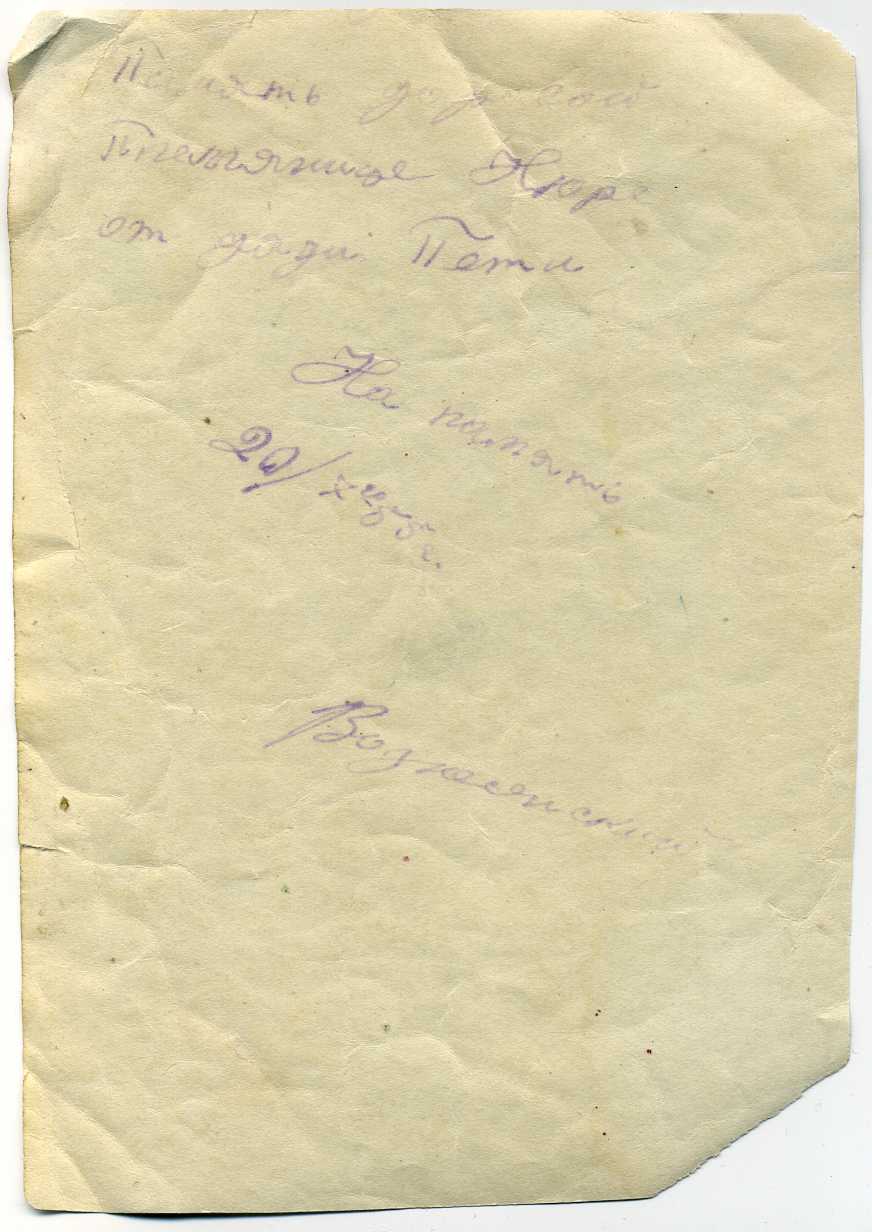 Память дорогой
Племянице Нюре
от дяди Пети
На память
20/
Вознесенский